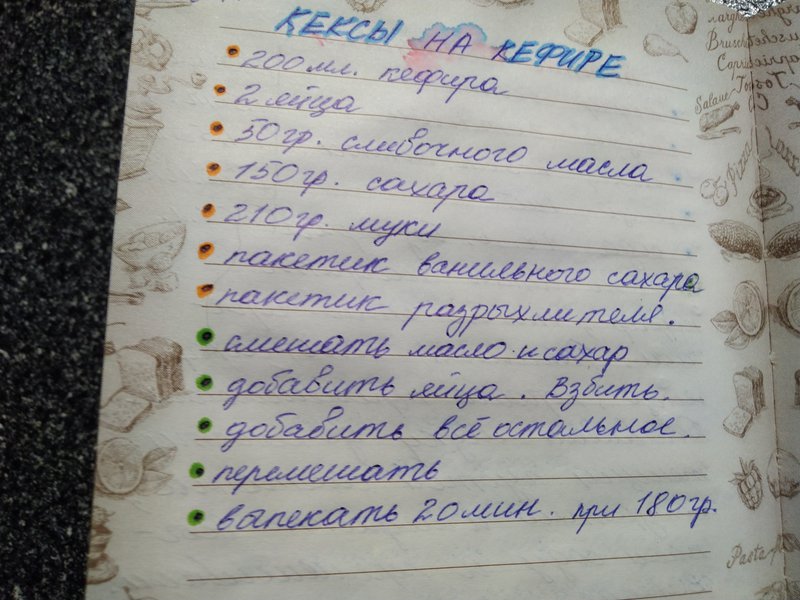 КЕКСЫ НА КЕФИРЕ
200мл. кефира
2 яйца
50гр. сливочного масла
150гр. сахара
210гр. муки
пакетик ванильного сахара
пакетик разрыхлителя.
смешать масло и сахар
добавить яйца. Взбить.
добавить всё остальное.
перемешать
выпекать 20мин. при 180гр.
Salame
Pizza
Pasta